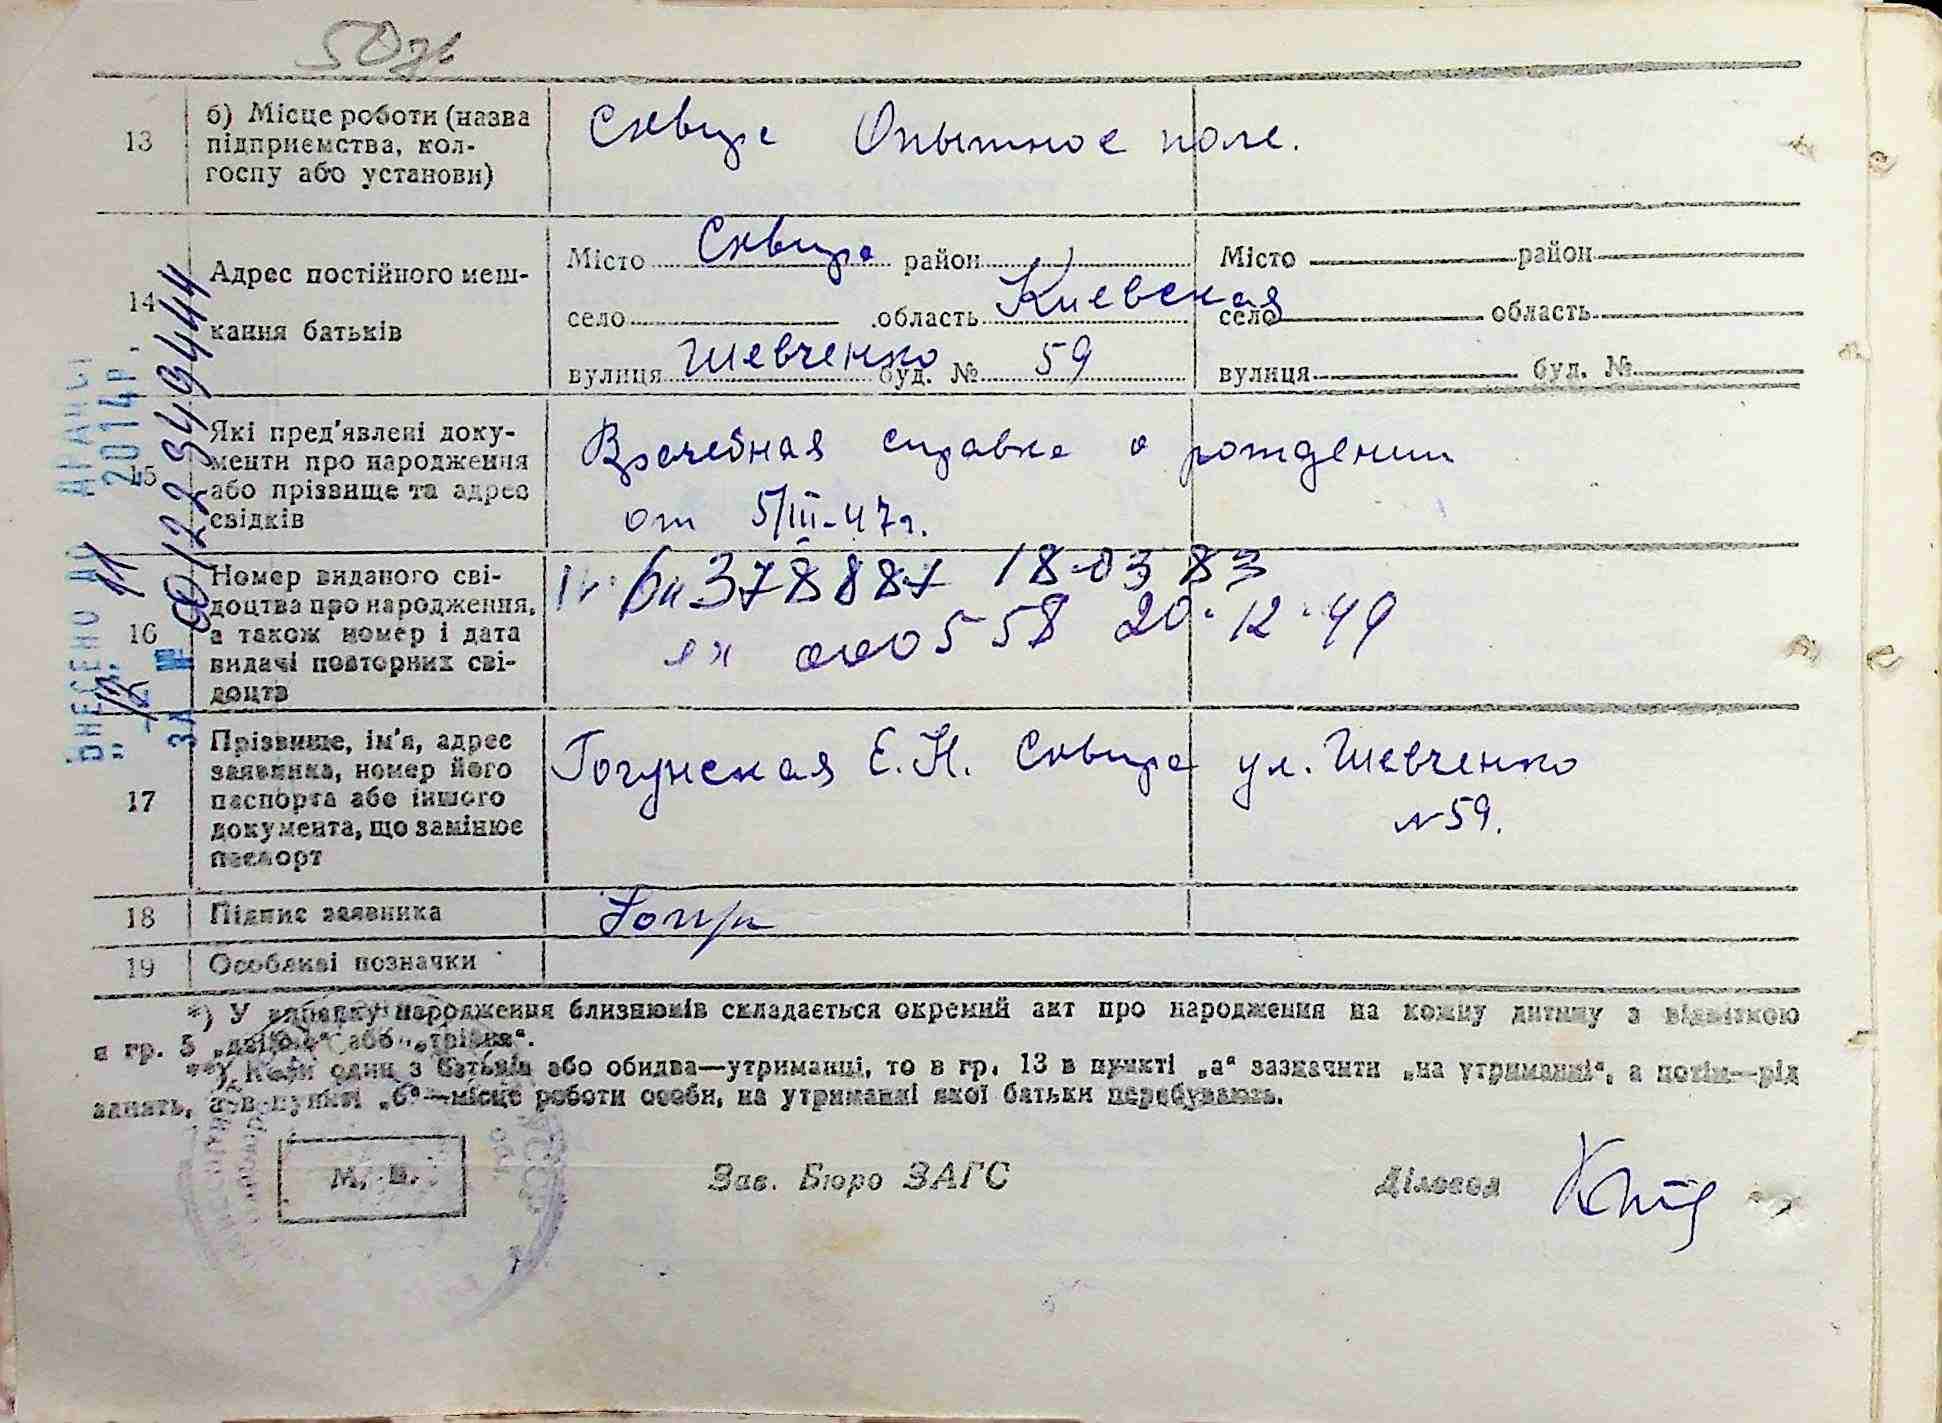 13
б) Місце роботи (назва
підприємства, кол-
госпу або установи)
Сквира Опытное поле.
14
Адрес постійного меш-
кання батьків
Місто Сквира район
село область Киевская
вулиця Шевченко буд. № 59
Місто район
село область
вулиця буд. №
15
Які пред'явлені доку-
менти про народження
або прізвище та адрес
свідків
Врачебная справка о рождении
от 5/III-47г.
16
Номер виданого сві-
доцтва про народження,
а також номер і дата
видачі повторних сві-
доцтв
378887 18-03 83
000558 20.12.49
17
Прізвище, ім'я, адрес
заявника, номер його
паспорта або іншого
документа, що замінює
паспорт
Гогунская Е.Н. Сквира ул. Шевченко
№ 59.
18
Підпис заявника
19
Особливі позначки
*) У випадку народження близнюків складається окремий акт про народження на кожну дитину з відміткою
в гр. 5 „двійня“ або „трійня“.
**) Коли один з батьків або обидва—утриманці, то в гр. 13 в пункті „а“ зазначити „на утриманні“, а потім—рід
занять, а в пункті „б“—місце роботи особи, на утриманні якої батьки перебувають.
М. п.
Зав. Бюро ЗАГС
Діловод
ВНЕСЕНО ДО ДРАЦСГ
11 2014р.
ЗА № 00122349444